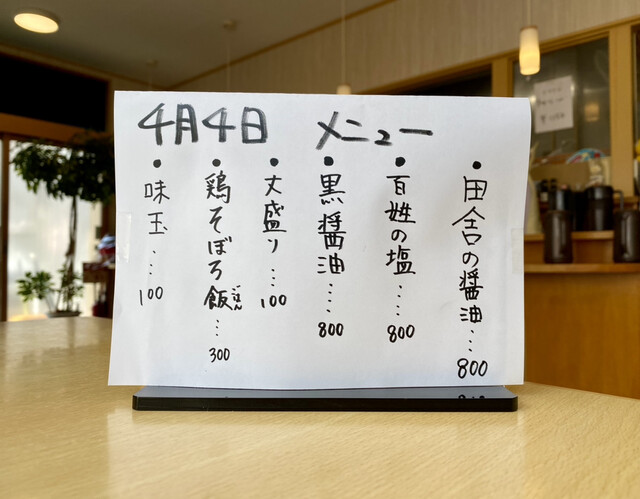 4月4日 メニュー
• 田舎の醤油…800
• 百姓の塩‥‥800
• 黒醤油‥‥800
• 大盛り…100
• 鶏そぼろ飯ごはん…300
• 味玉…100